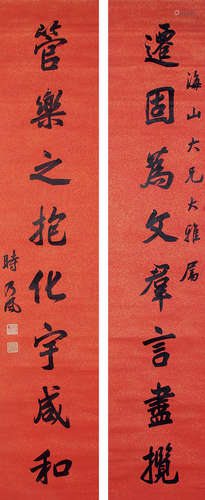 海山大兄大雅属
遷固為文羣言盡攬
管樂之抱化宇咸和
時乃風